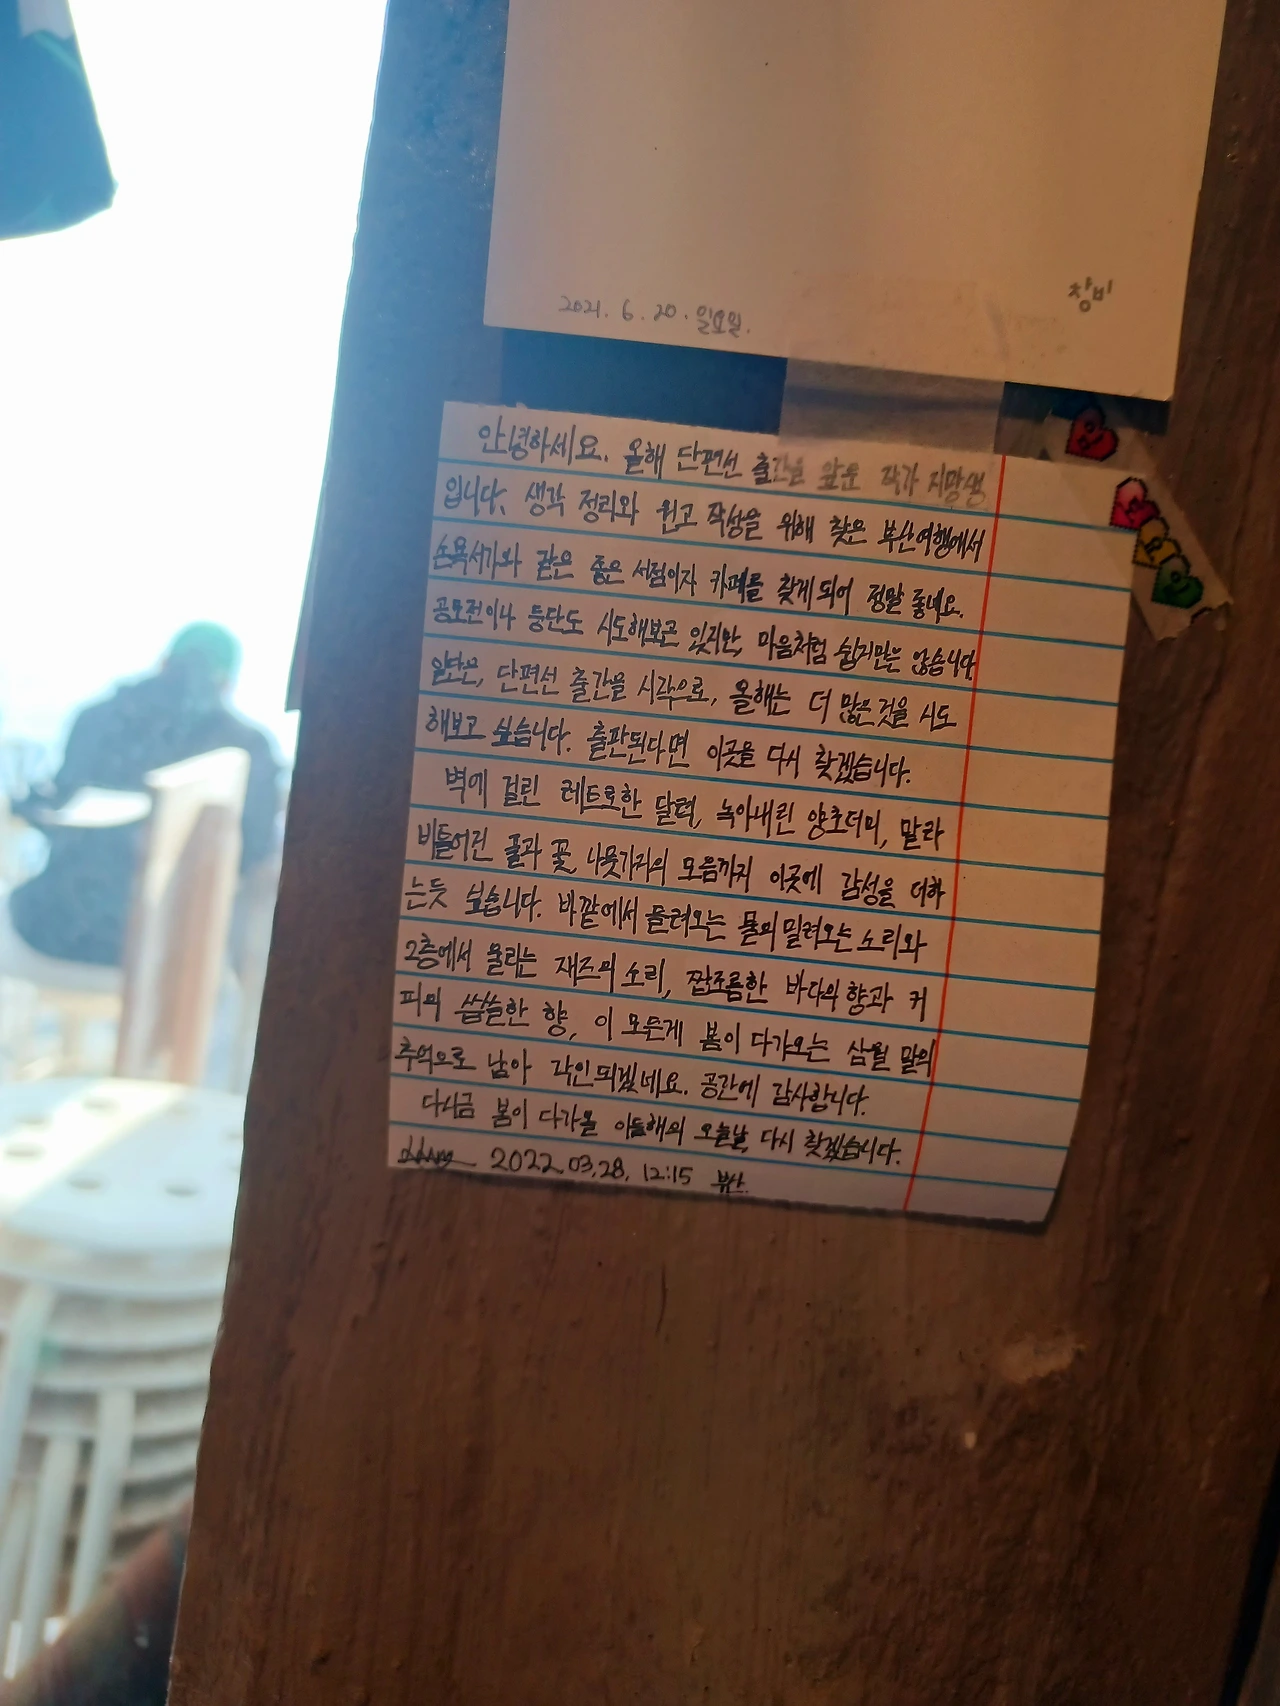 2021. 6. 20. 일요일.
창비
안녕하세요. 올해 단편선 출간을 앞둔 작가 지망생
입니다. 생각 정리와 원고 작성을 위해 찾은 부산여행에서
손목서가와 같은 좋은 서점이자 카페를 찾게 되어 정말 좋네요.
공모전이나 등단도 시도해보곤 있지만, 마음처럼 쉽지만은 않습니다.
일단은, 단편선 출간을 시작으로, 올해는 더 많은 것을 시도
해보고 싶습니다. 출판된다면 이곳을 다시 찾겠습니다.
벽에 걸린 레트로한 달력, 녹아내린 양초더미, 말라
비틀어진 풀과 꽃, 나뭇가지의 모음까지 이곳에 감성을 더하
는듯 싶습니다. 바깥에서 들려오는 물의 밀려오는 소리와
2층에서 울리는 재즈의 소리, 짭조름한 바다의 향과 커
피의 씁쓸한 향, 이 모든게 봄이 다가오는 삼월 말의
추억으로 남아 각인되겠네요. 공간에 감사합니다.
다시금 봄이 다가올 이듬해의 오늘날, 다시 찾겠습니다.
2022.03.28. 12:15 부산.